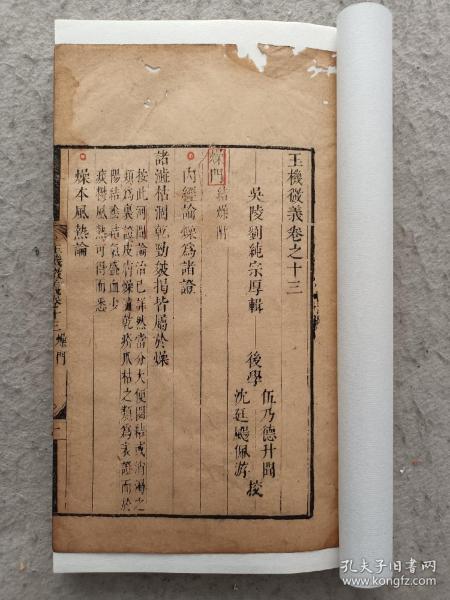 玉機微義卷之十三
吳陵劉純宗厚輯
後學
伍乃德升聞
沈廷颺佩游
挍
燥門 結燥附
內經論燥爲諸證
諸澁枯涸乾勁皴揭皆屬於燥
按此河間論治已詳然當分大便閉結或消渴之
類爲裏證皮膚燥瀆乾疥爪枯之類爲表證而於
陽結陰結氣盛血少
痰鬱風熱可得而悉
燥本風熱論
玉機微義卷十三 燥門
一
孔夫子旧书网
www.kongfz.com